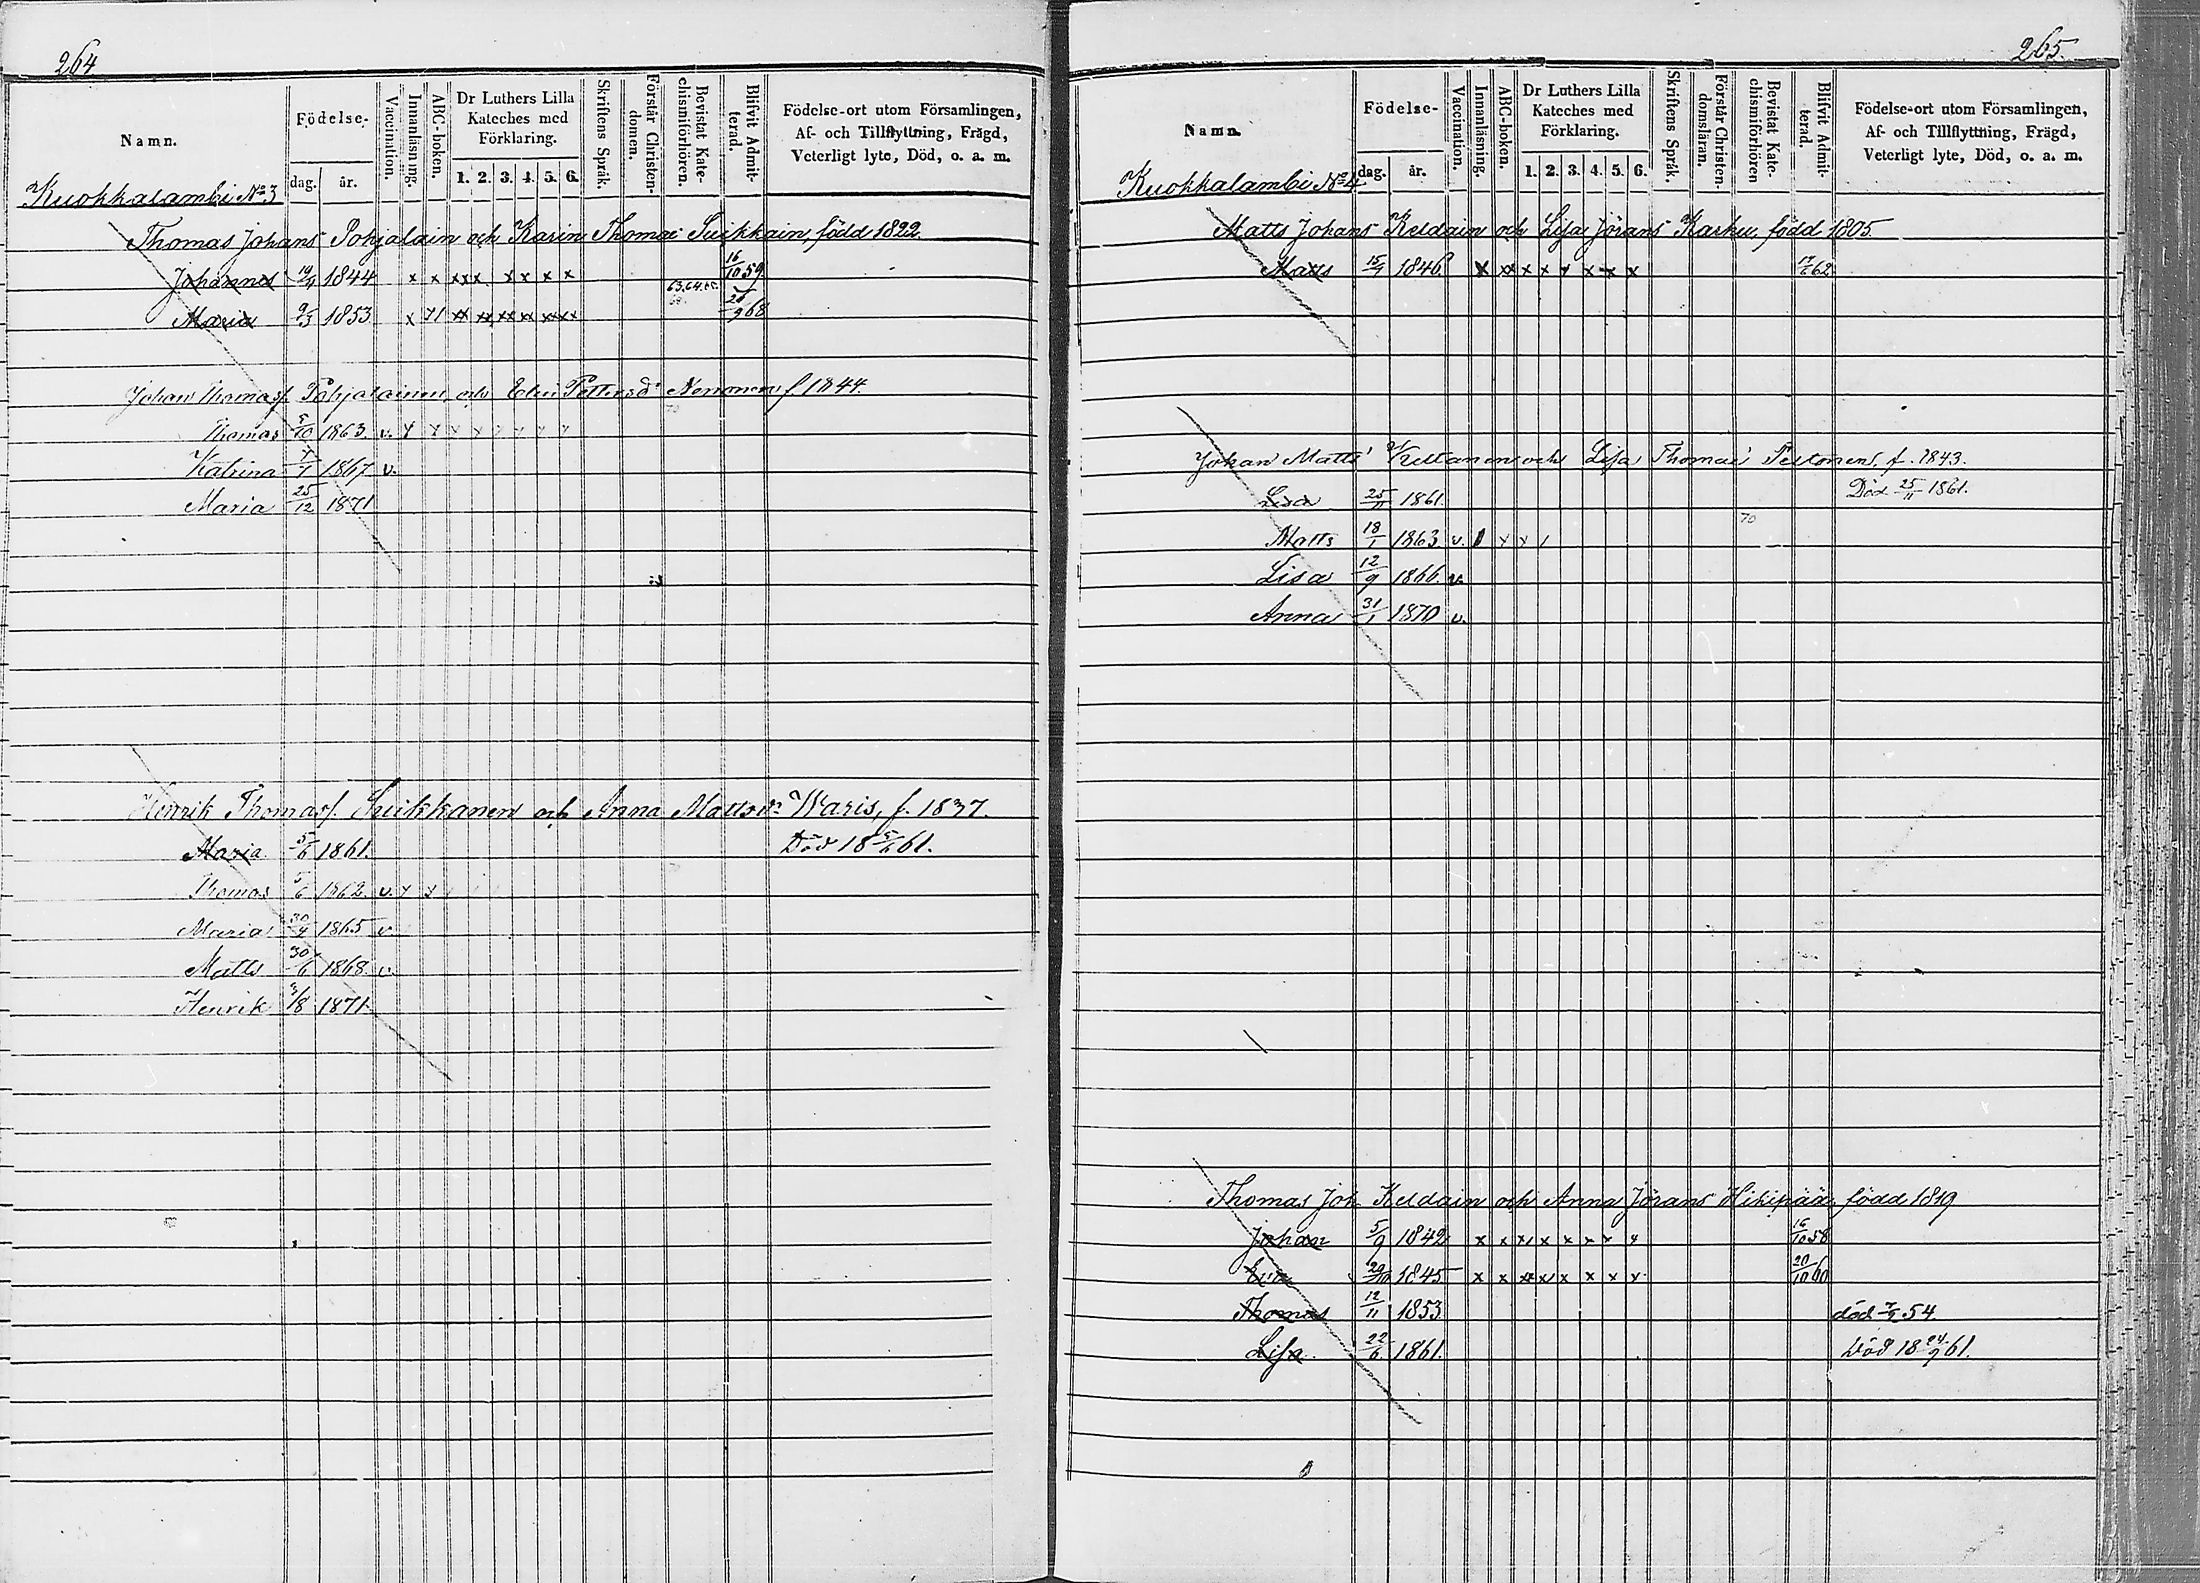 264
Namn.
Födelse-
dag.
år.
Vaccination.
Innanläsning.
ABC-boken.
Dr Luthers Lilla
Kateches med
Förklaring.
1. 2. 3. 4. 5. 6.
Skriftens Språk.
Förstår Christen-
domen.
Bevistat Kate-
chismiförhören.
Blifvit Admit-
terad.
Födelse-ort utom Församlingen,
Af- och Tillflyttning, Frägd,
Veterligt lyte, Död, o. a. m.
Kuokkalambi No 3
Thomas Johans Pohjalain och Karin Thomas Suikkain, född 1822
Johannes 1844 x x xxx x x x x 16/10 59
63.64.65.
Maria 9/3 1853 x 71 68
Johan Thomass. Pohjalainen och Elin Petersd. Nenonen f. 1844.
70
Thomas 5/10 1863. v. x x x x x x x x
Katrina 1867 v.
Maria 25/12 1871
Henrik Thomass. Suikkanen och Anna Mattsd. Waris, f. 1837.
Maria 5/6 1861. Död 18 5/6 61.
Thomas 5/6 1862 v. x x
Maria 1865 v.
Matts 30/6 1868. v.
Henrik 3/8 1871.
265.
Namn.
Födelse-
dag.
år.
Vaccination.
Innanläsning.
ABC-boken.
Dr Luthers Lilla
Kateches med
Förklaring.
1. 2. 3. 4. 5. 6.
Skriftens Språk.
Förstår Christen-
domsläran.
Bevistat Kate-
chismiförhören
Blifvit Admit-
terad.
Födelse-ort utom Församlingen,
Af- och Tillflyttning, Frägd,
Veterligt lyte, Död, o. a. m.
Kuokkalambi No 4
Matts Johans Keldain och Lisa Jörans Karhu född 1805
Matts 1846 x xx x x x x x x 62
Johan Matts Keltanen och Lisa Thomas Peltonen, f. 1843.
Lisa 25/11 1861. Död 25/11 1861.
70
Matts 18/1 1863 v. x x
Lisa 12/9 1866. v.
Anna 31/1 1870 v.
Thomas Joh Keldain och Anna Jörans Hikipää, född 1819
Johan 5/9 1842 x x x x x x x x 16/10 58
Eva 29/10 1845 x x x x x x x x 20/10 60
Thomas 12/11 1853 död 54.
Lisa 22/6 1861. Död 18 61.